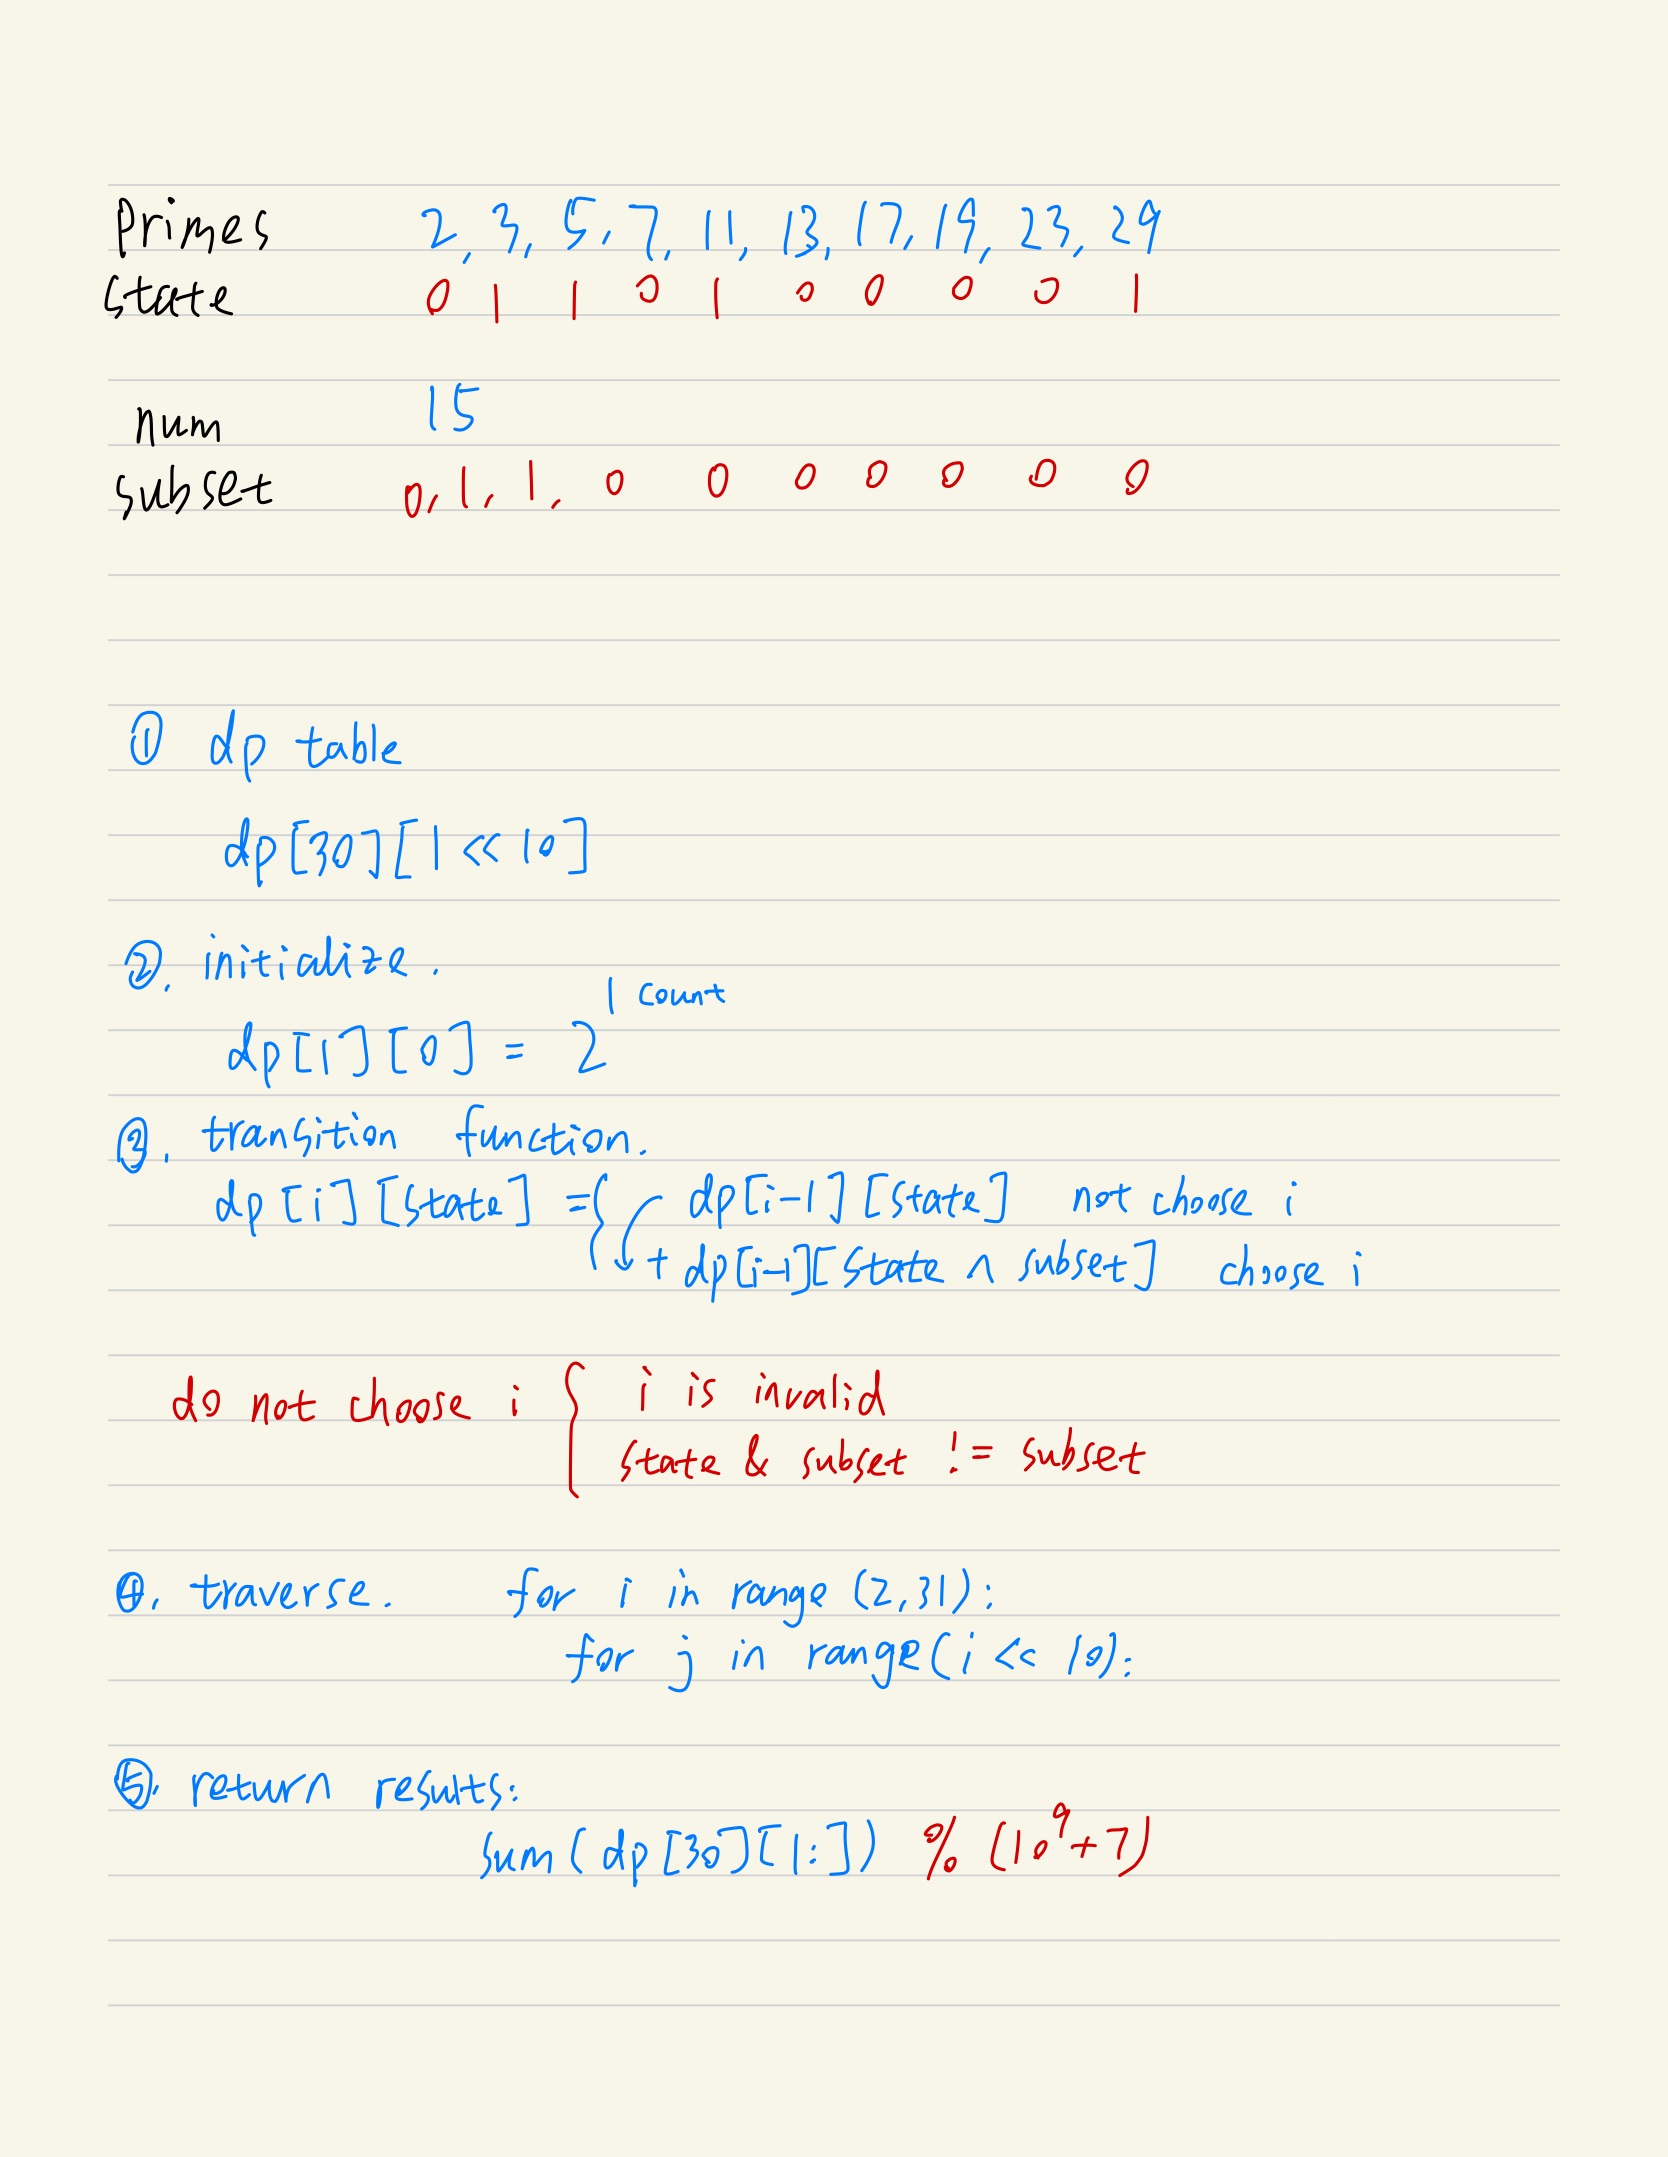 Primes 2, 3, 5, 7, 11, 13, 17, 19, 23, 29
state 0 1 1 0 1 0 0 0 0 1
num 15
subset 0, 1, 1, 0 0 0 0 0 0 0
① dp table
dp[30][1 << 10]
②. initialize.
dp[1][0] = 2^1 count
③. transition function.
dp[i][state] = { dp[i-1][state] not choose i
+ dp[i-1][state ∧ subset] choose i
do not choose i { i is invalid
state & subset != subset
④. traverse. for i in range (2,31):
for j in range(i << 10):
⑤. return results:
sum(dp[30][1:]) % (10^9+7)